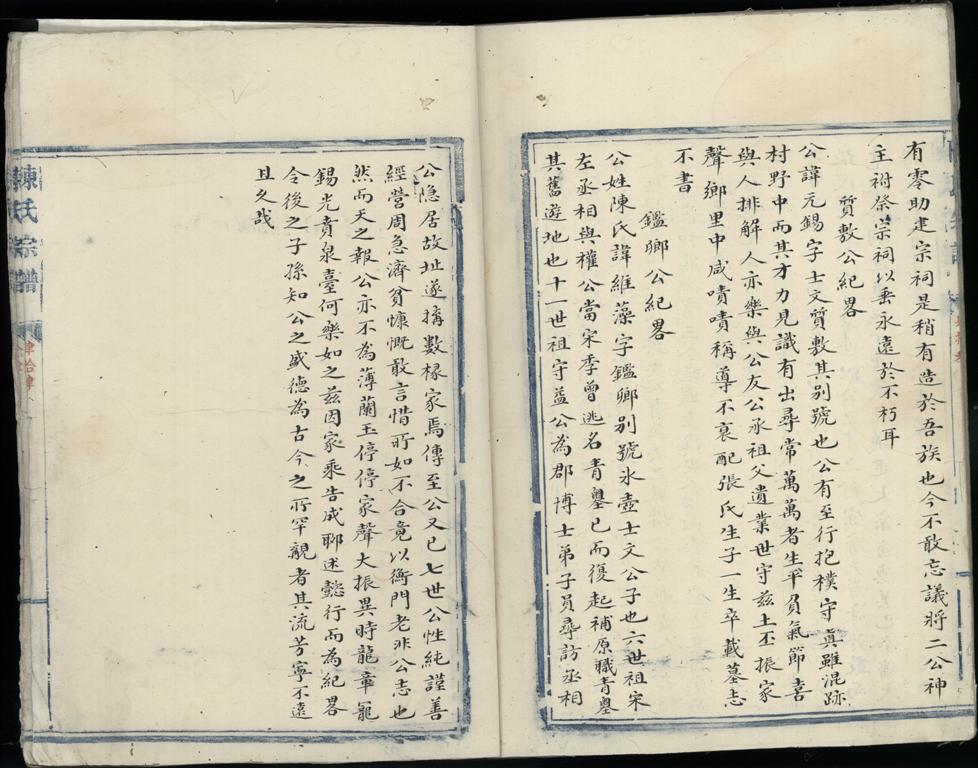 有零助建宗祠是稍有造於吾族也今不敢忘議將二公神
主祔祭宗祠以垂永遠於不朽耳
質敷公紀畧
公諱元錫字士文質敷其別號也公有至行抱樸守真雖混跡
村野中而其才力見識有出尋常萬萬者生平負氣節喜
與人排解人亦樂與公友公承祖父遺業世守茲土丕振家
聲鄉里中咸嘖嘖稱導不衰配張氏生子一生卒載墓志
不書
鑑鄉公紀畧
公姓陳氏諱維藻字鑑鄉別號氷壺士文公子也六世祖宋
左丞相與權公當宋季曾逃名青墨已而復起補原職青墨
其舊遊地也十一世祖守益公為郡博士弟子員尋訪丞相
公隱居故址遂搆數椽家焉傳至公又已七世公性純謹善
經營周急濟貧慷慨敢言惜所如不合竟以衡門老非公志也
然而天之報公亦不為薄蘭玉停停家聲大振異時龍章寵
錫光賁泉臺何樂如之茲因家乘告成聊述懿行而為紀畧
令後之子孫知公之盛德為古今之所罕覯者其流芳寧不遠
且久哉
陳氏宗譜